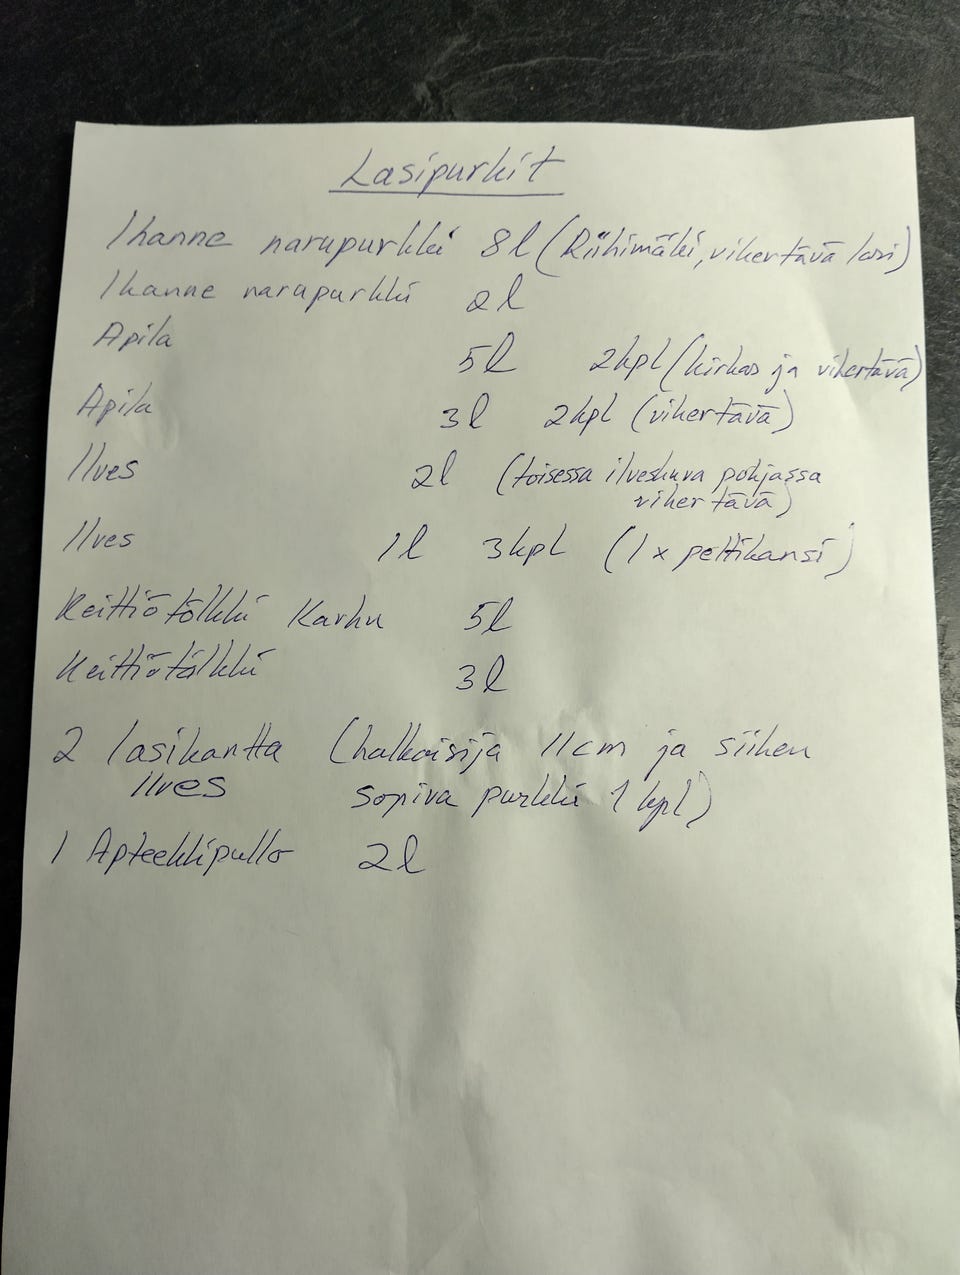 Lasipurkit
Ihanne narupurkki 8l (Riihimäki, vihertävä lasi)
Ihanne narupurkki 2l
Apila 5l 2kpl (kirkas ja vihertävä)
Apila 3l 2kpl (vihertävä)
Ilves 2l (toisessa ilveskuva pohjassa
vihertävä)
Ilves 1l 3kpl (1x peltikansi)
Keittiötölkki Karhu 5l
Keittiötölkki 3l
2 lasikantta (halkaisija 11cm ja siihen
Ilves sopiva purkki 1 kpl)
1 Apteekkipullo 2l